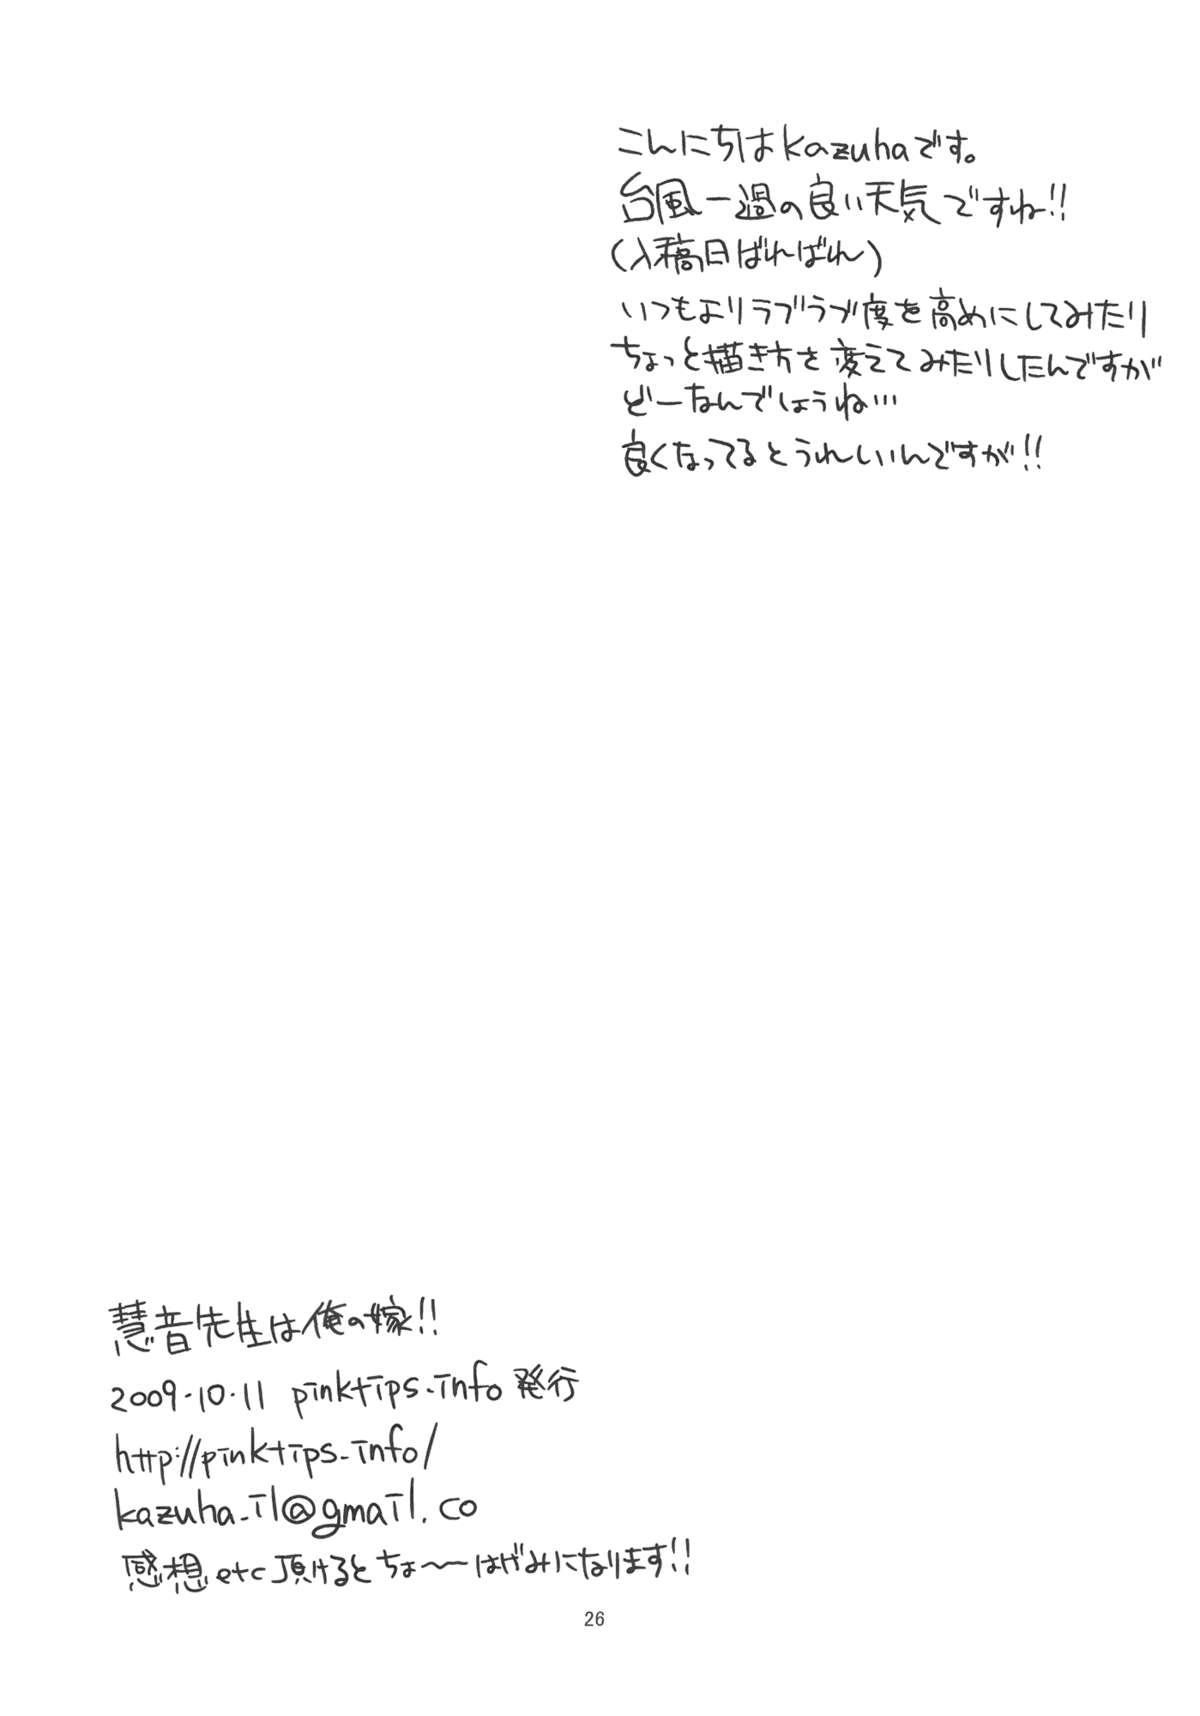 こんにちはkazuhaです。
台風一過の良い天気ですね!!
(入稿日ばればれ)
いつもよりラブラブ度を高めにしてみたり
ちょっと描き方を変えてみたりしたんですが
どーなんでしょうね…
良くなってるとうれしいんですが!!
慧音先生は俺の嫁!!
2009.10.11 pinktips.info 発行
http://pinktips.info/
kazuha.il@gmail.co
感想etc頂けるとちょ〜〜はげみになります!!
26